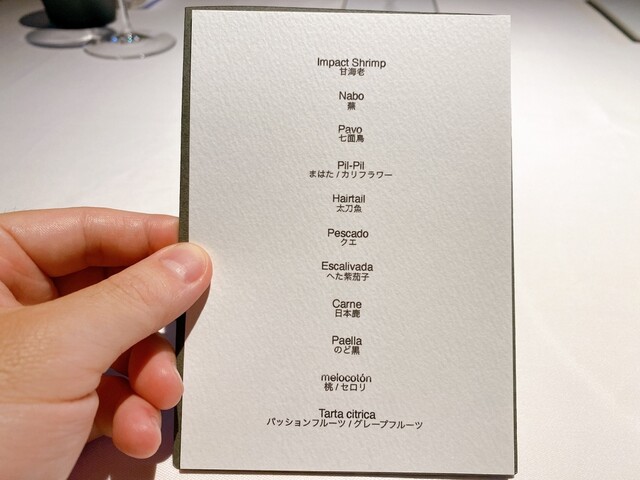 Impact Shrimp
甘海老
Nabo
蕪
Pavo
七面鳥
Pil-Pil
まはた / カリフラワー
Hairtail
太刀魚
Pescado
クエ
Escalivada
へた紫茄子
Carne
日本鹿
Paella
のど黒
melocotón
桃 / セロリ
Tarta citrica
パッションフルーツ / グレープフルーツ